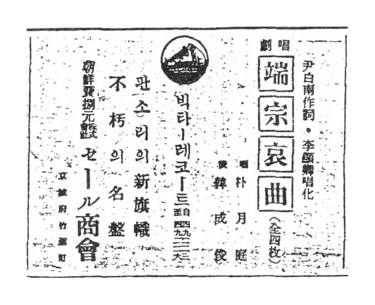 尹白南作詞・李顧卿唱化
唱劇
端宗哀曲
(全四枚)
唱 朴月庭
韓成俊
빅타ー레코ー드
판소리의新旗幟
不朽의名盤
朝鮮發捌元
株式會社
セール商會
京城府竹園町